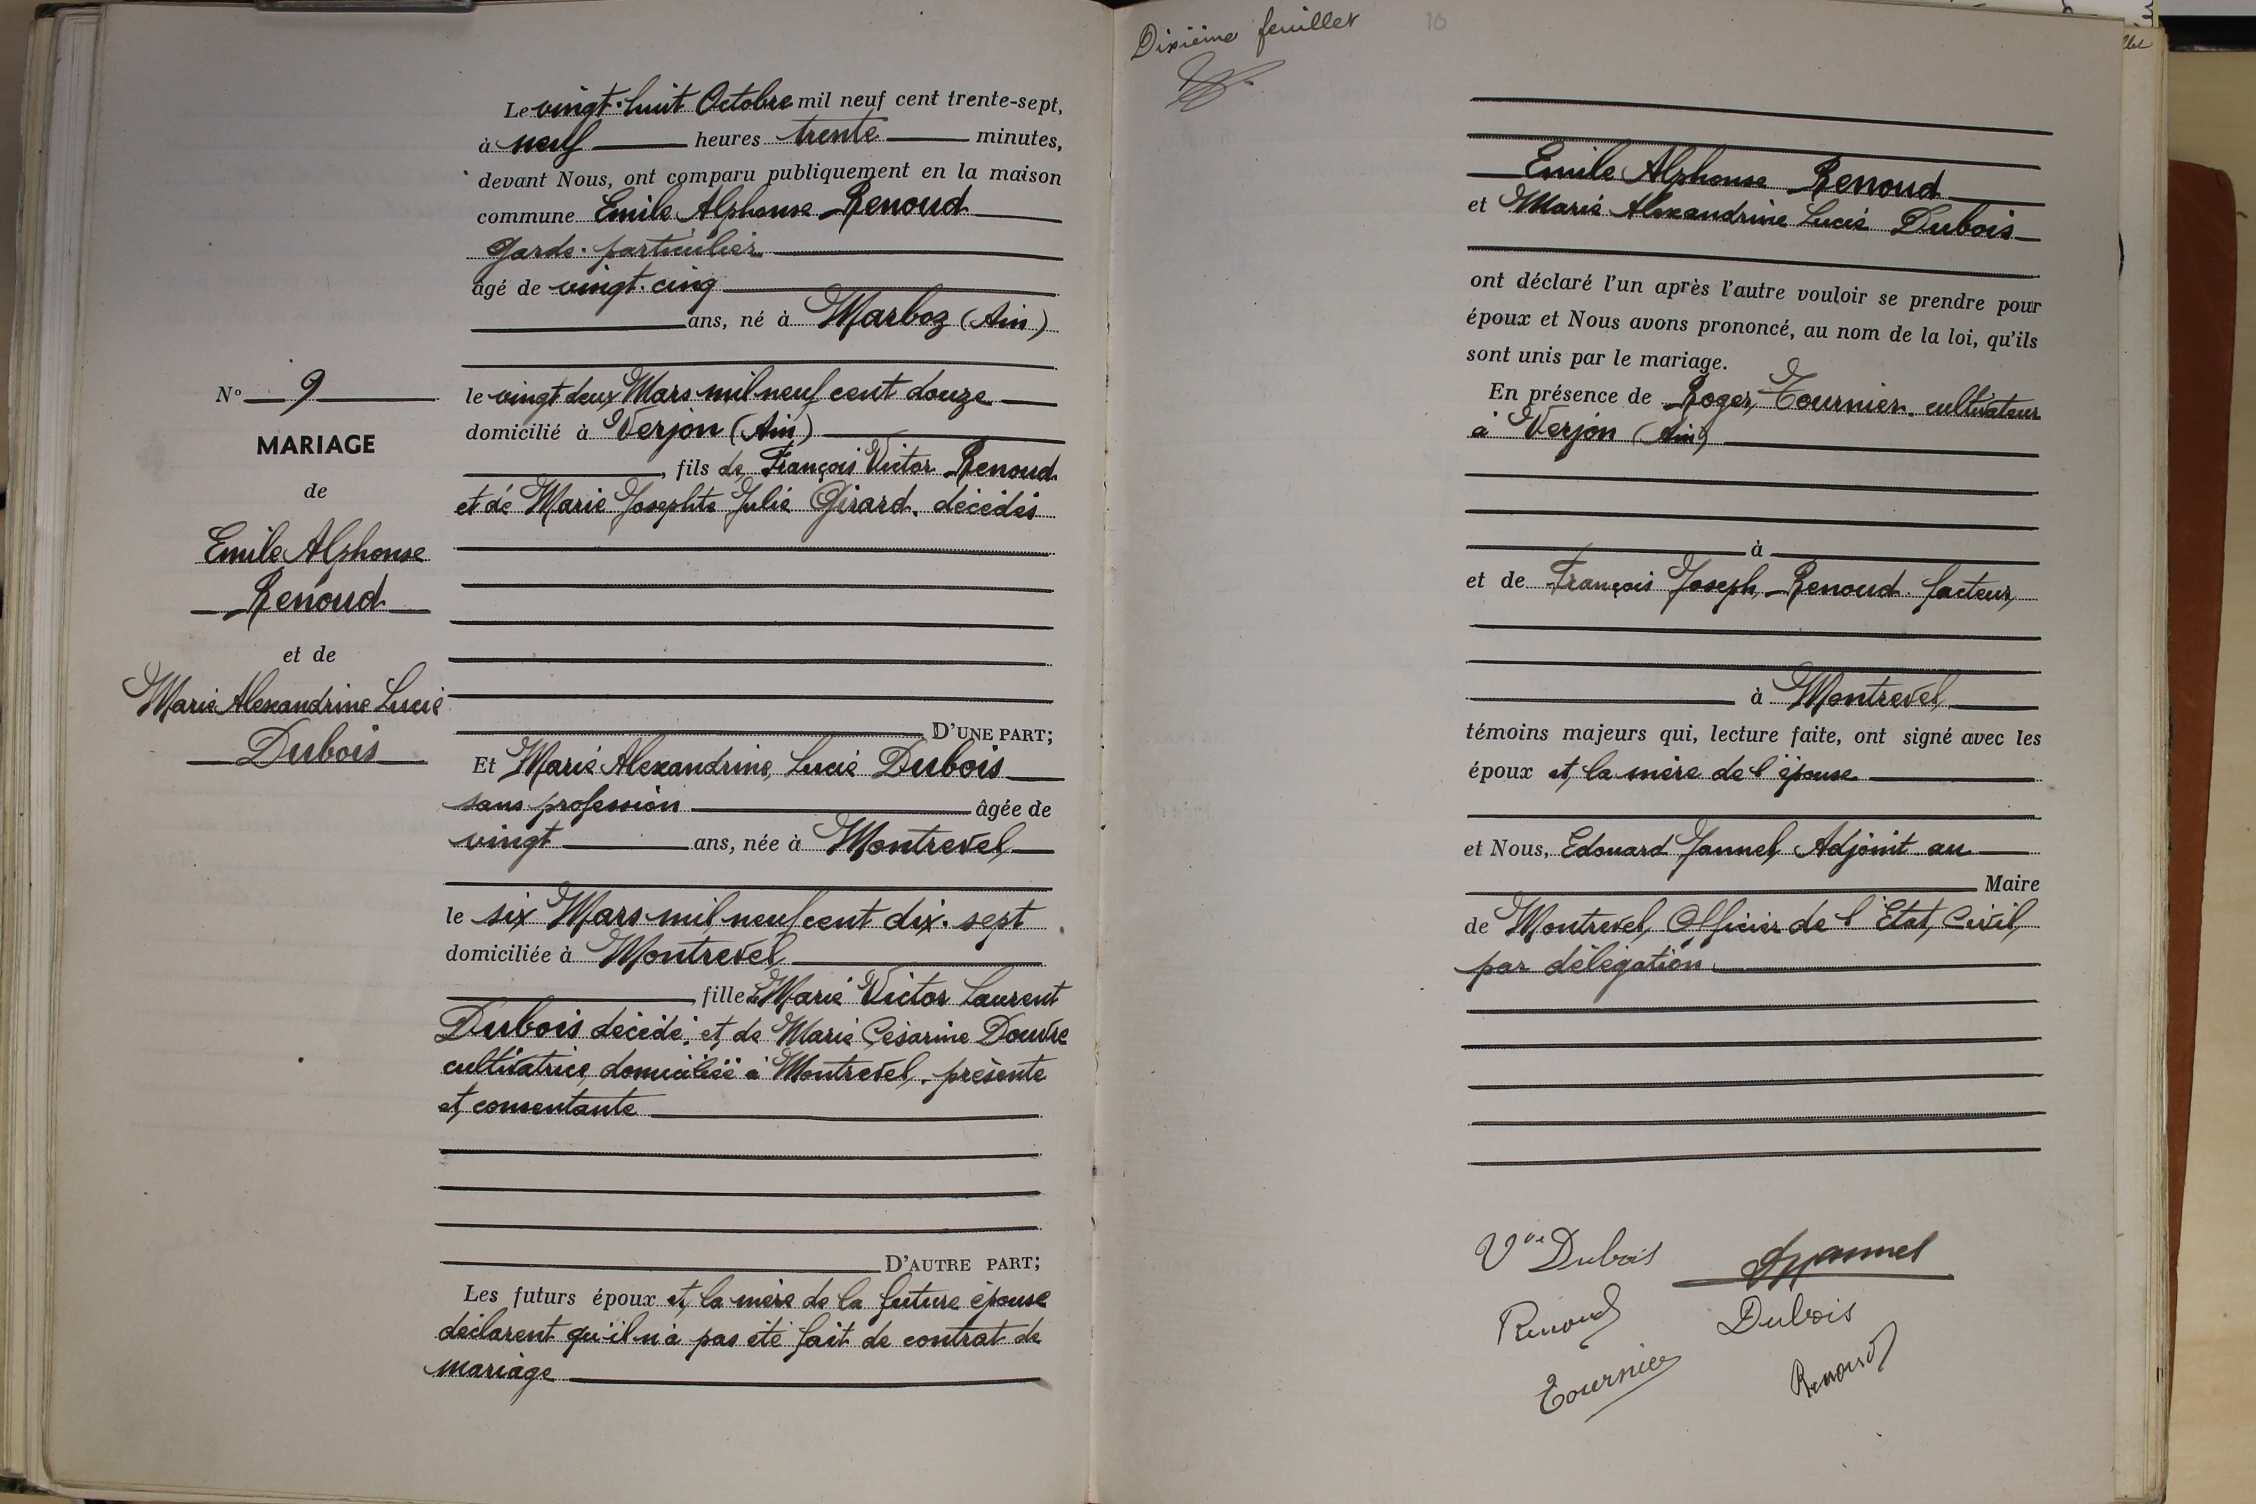 Le vingt-huit Octobre mil neuf cent trente-sept,
à neuf heures trente minutes,
devant Nous, ont comparu publiquement en la maison
commune Emile Alphonse Renoud
Garde-particulier
âgé de vingt-cinq
ans, né à Marboz (Ain)
N° 9
MARIAGE
de
Emile Alphonse
Renoud
et de
Marie Alexandrine Lucie
Dubois
le vingt deux Mars mil neuf cent douze
domicilié à Verjon (Ain)
fils de François Victor Renoud
et de Marie Josephte Julie Girard, décédés
D'UNE PART;
Et Marie Alexandrine Lucie Dubois
sans profession âgée de
vingt ans, née à Montrevel
le six Mars mil neuf cent dix-sept
domiciliée à Montrevel
fille de Marie Victor Laurent
Dubois décédé, et de Marie Césarine Douvre
cultivatrice, domiciliée à Montrevel, présente
et consentante
D'AUTRE PART;
Les futurs époux et la mère de la future épouse
déclarent qu'il n'a pas été fait de contrat de
mariage
Dixième feuillet
10
Emile Alphonse Renoud
et Marie Alexandrine Lucie Dubois
ont déclaré l'un après l'autre vouloir se prendre pour
époux et Nous avons prononcé, au nom de la loi, qu'ils
sont unis par le mariage.
En présence de Roger Tournier, cultivateur
à Verjon (Ain)
à
et de François Joseph Renoud, facteur,
à Montrevel
témoins majeurs qui, lecture faite, ont signé avec les
époux et la mère de l'épouse
et Nous, Edouard Jannel, Adjoint au
Maire
de Montrevel, Officier de l'Etat Civil,
par délégation
Vve Dubois
Jannel
Renoud
Dubois
Tournier
Renoud